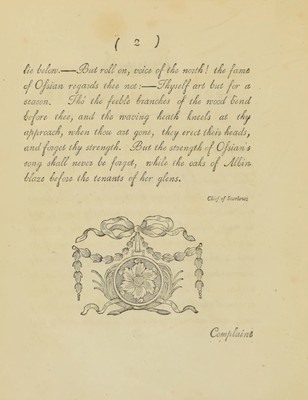 ( 2 )
lie below.——But roll on, voice of the north! the fame
of Ossian regards thee not:——Thyself art but for a
season. Tho' the feeble branches of the wood bend
before thee, and the waving heath kneels at thy
approach, when thou art gone, they erect their heads,
and forget thy strength. But the strength of Ossian's
song shall never be forgot, while the oaks of Albin
blaze before the tenants of her glens.
Chief of
Complaint